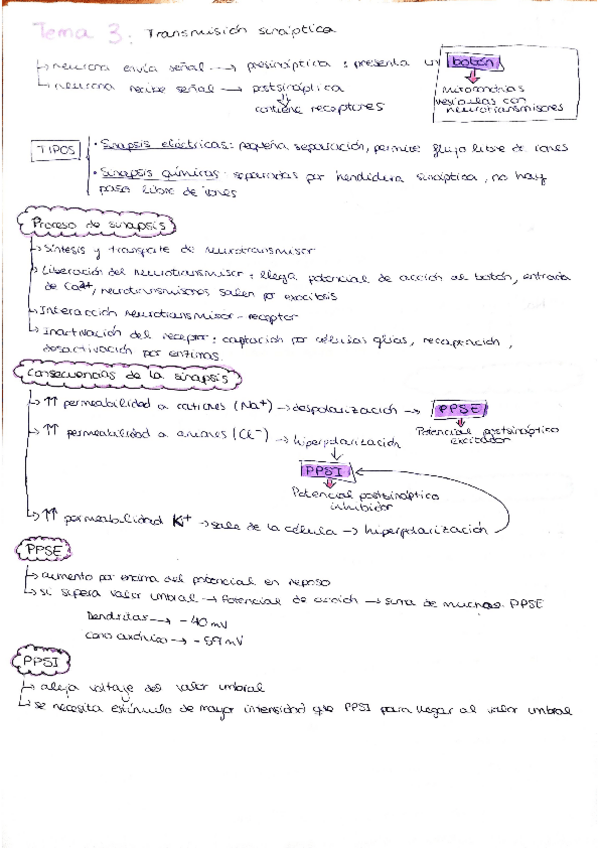 Tema 3: Transmisión sináptica
neurona envía señal → presináptica: presenta un botón
neurona recibe señal → postsináptica
contiene receptores
mitocondrias
vesículas con
neurotransmisores
TIPOS
· Sinapsis eléctricas: pequeña separación, permite flujo libre de iones
· Sinapsis químicas: separadas por hendidura sináptica, no hay
paso libre de iones
Proceso de sinapsis
Síntesis y transporte de neurotransmisor
Liberación del neurotransmisor: llega potencial de acción al botón, entrada
de Ca2+, neurotransmisores salen por exocitosis
Interacción neurotransmisor-receptor
Inactivación del receptor: captación por células glías, recaptación,
desactivación por enzimas.
Consecuencias de la sinapsis
↑↑ permeabilidad a cationes (Na+) → despolarización → PPSE
Potencial postsináptico
excitador
↑↑ permeabilidad a aniones (Cl-) → hiperpolarización
PPSI
Potencial postsináptico
inhibidor
↑↑ permeabilidad K+ → sale de la célula → hiperpolarización
PPSE
aumento por encima del potencial en reposo
si supera valor umbral → Potencial de acción → suma de muchos PPSE
Dendritas → -40 mV
Cono axónico → -59 mV
PPSI
aleja voltaje del valor umbral
se necesita estímulo de mayor intensidad que PPSI para llegar al valor umbral